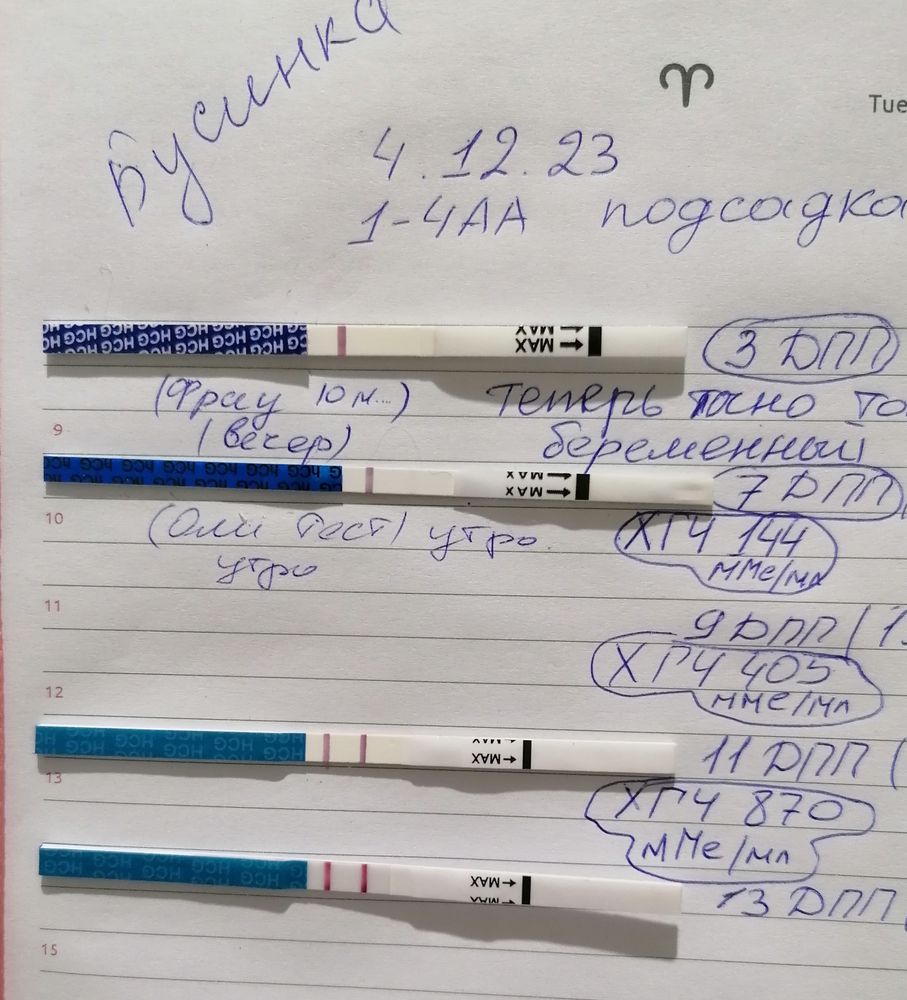 Бусинка
Tue
4.12.23
1-4АА подсадка
HCG HCG HCG HCG HCG HCG HCG
MAX
MAX
3 ДПП
(Фрау 10 м...) Теперь точно то
9
(вечер) беременный
hCG hCG hCG hCG hCG hCG
MAX
MAX
7 ДПП
10
(Оли тест) утро
ХГЧ 144
утро
мМе/мл
11
9 ДПП (1
ХГЧ 405
12
мме/мл
HCG HCG HCG HCG
MAX
MAX
11 ДПП (
13
ХГЧ 870
мМе/мл
HCG HCG HCG HCG
MAX
MAX
13 ДПП
15